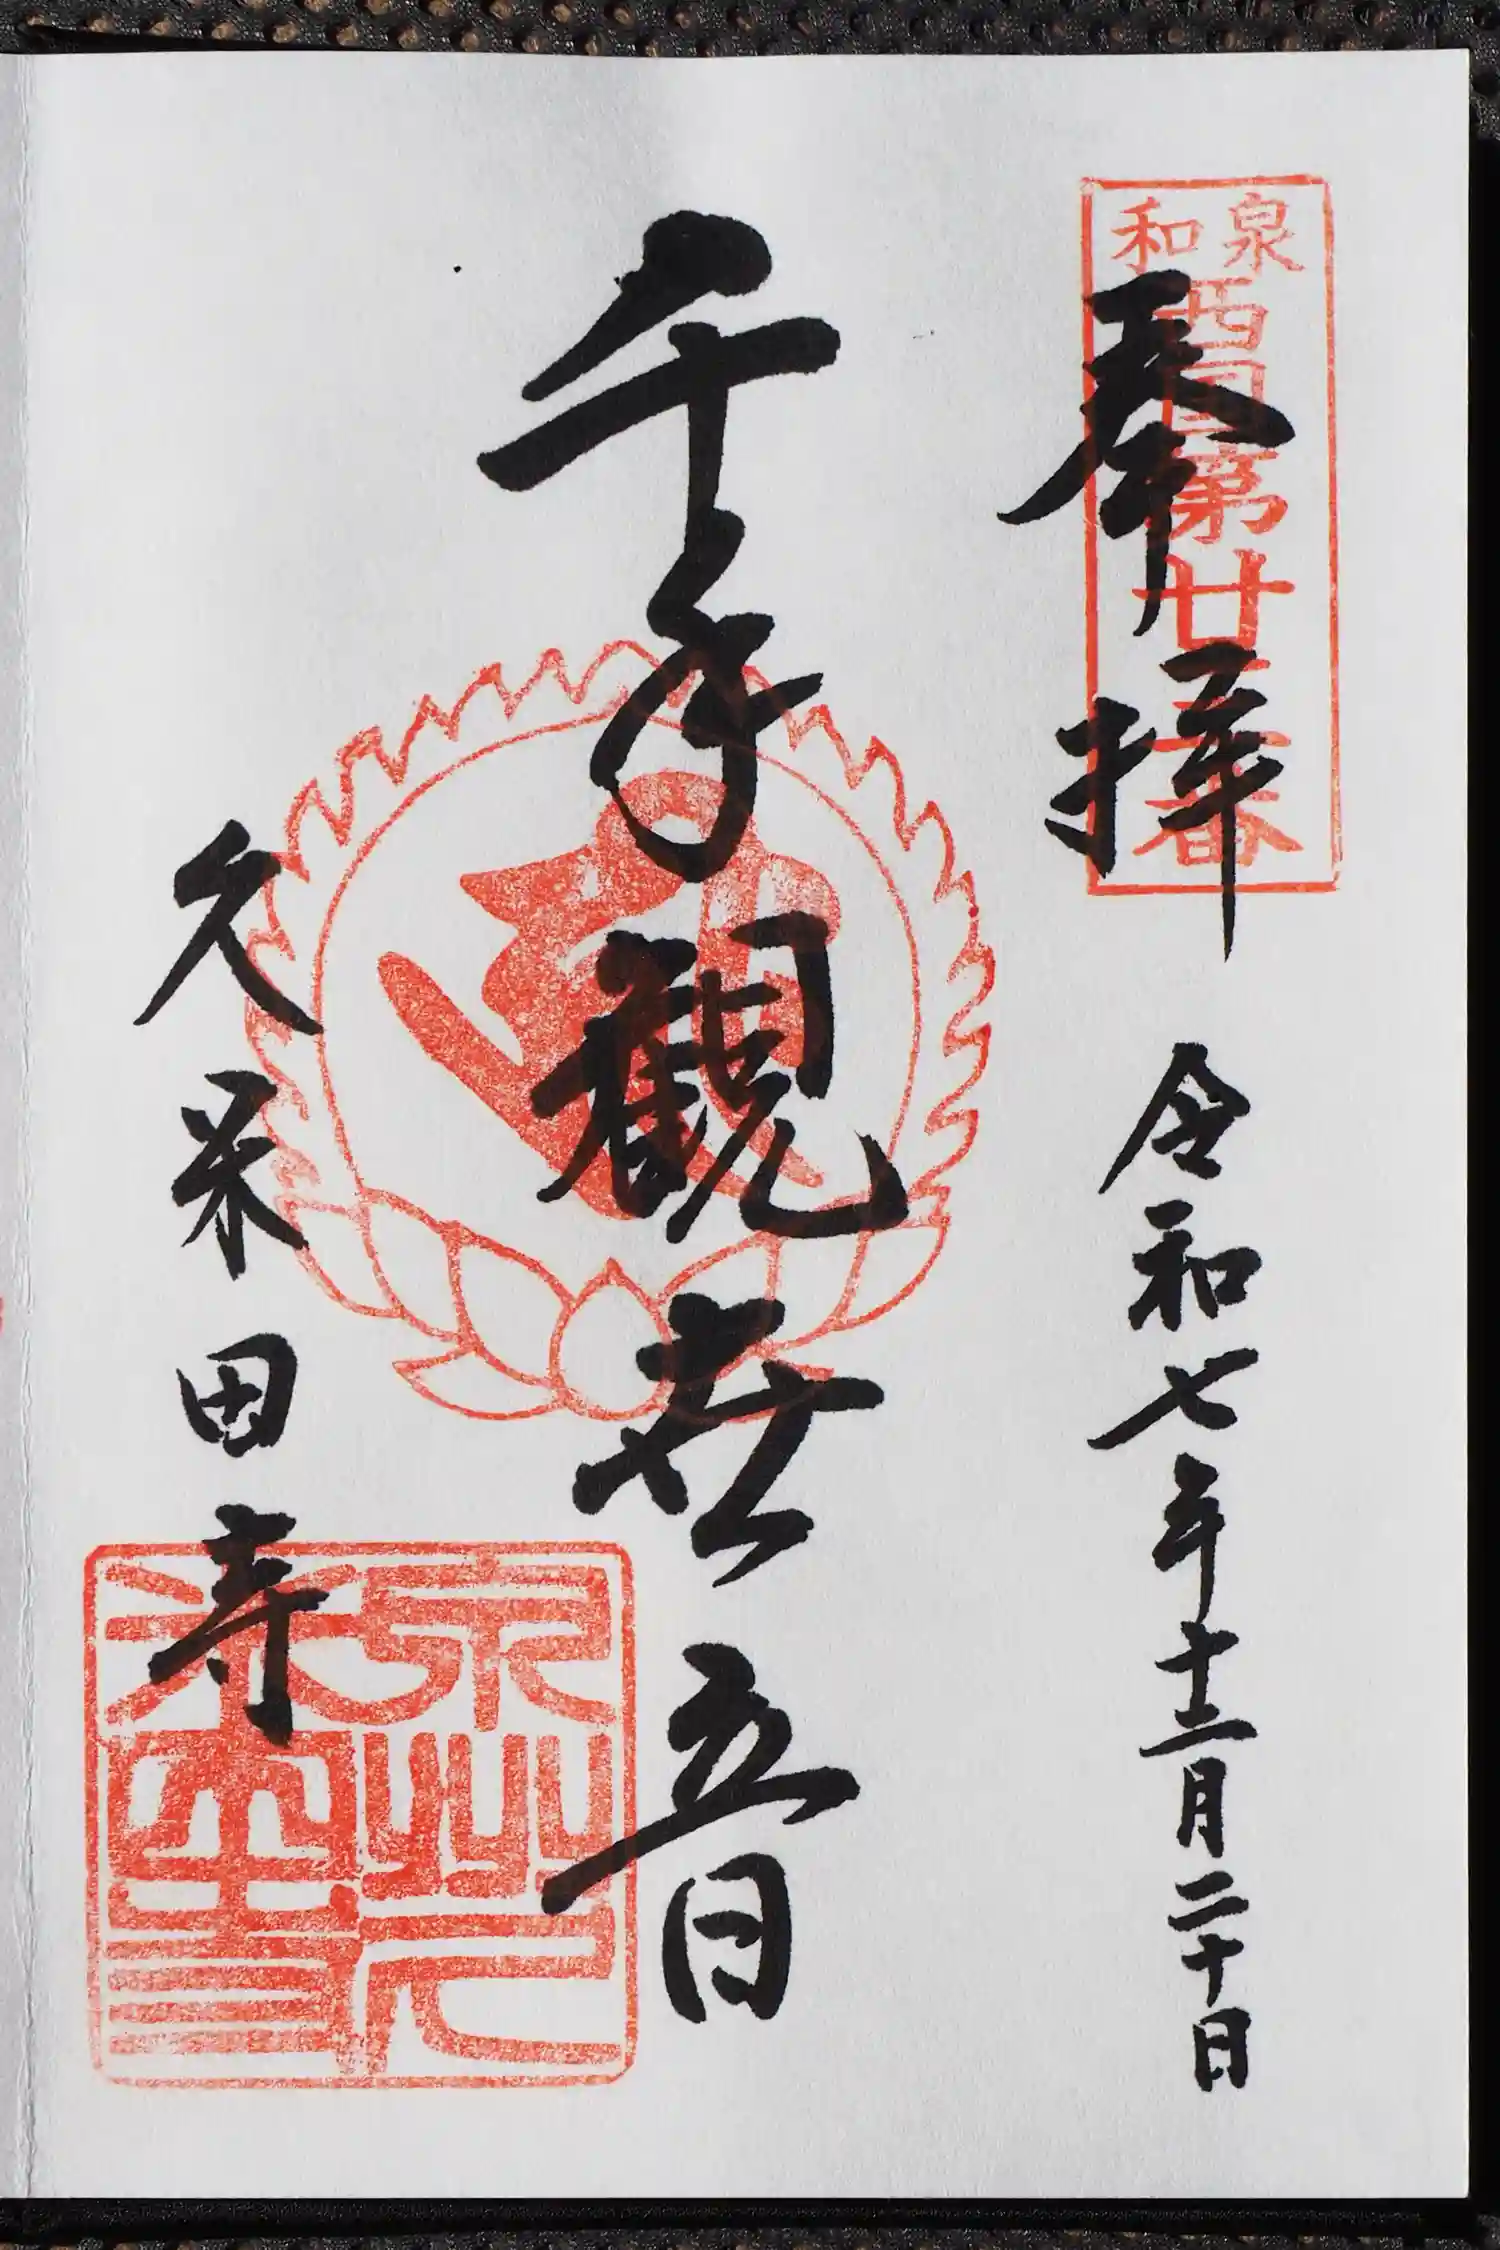 泉和
西国第廿二番
奉拝
令和七年十二月二十日
千手観世音
久米田寺
泉州久
米田寺